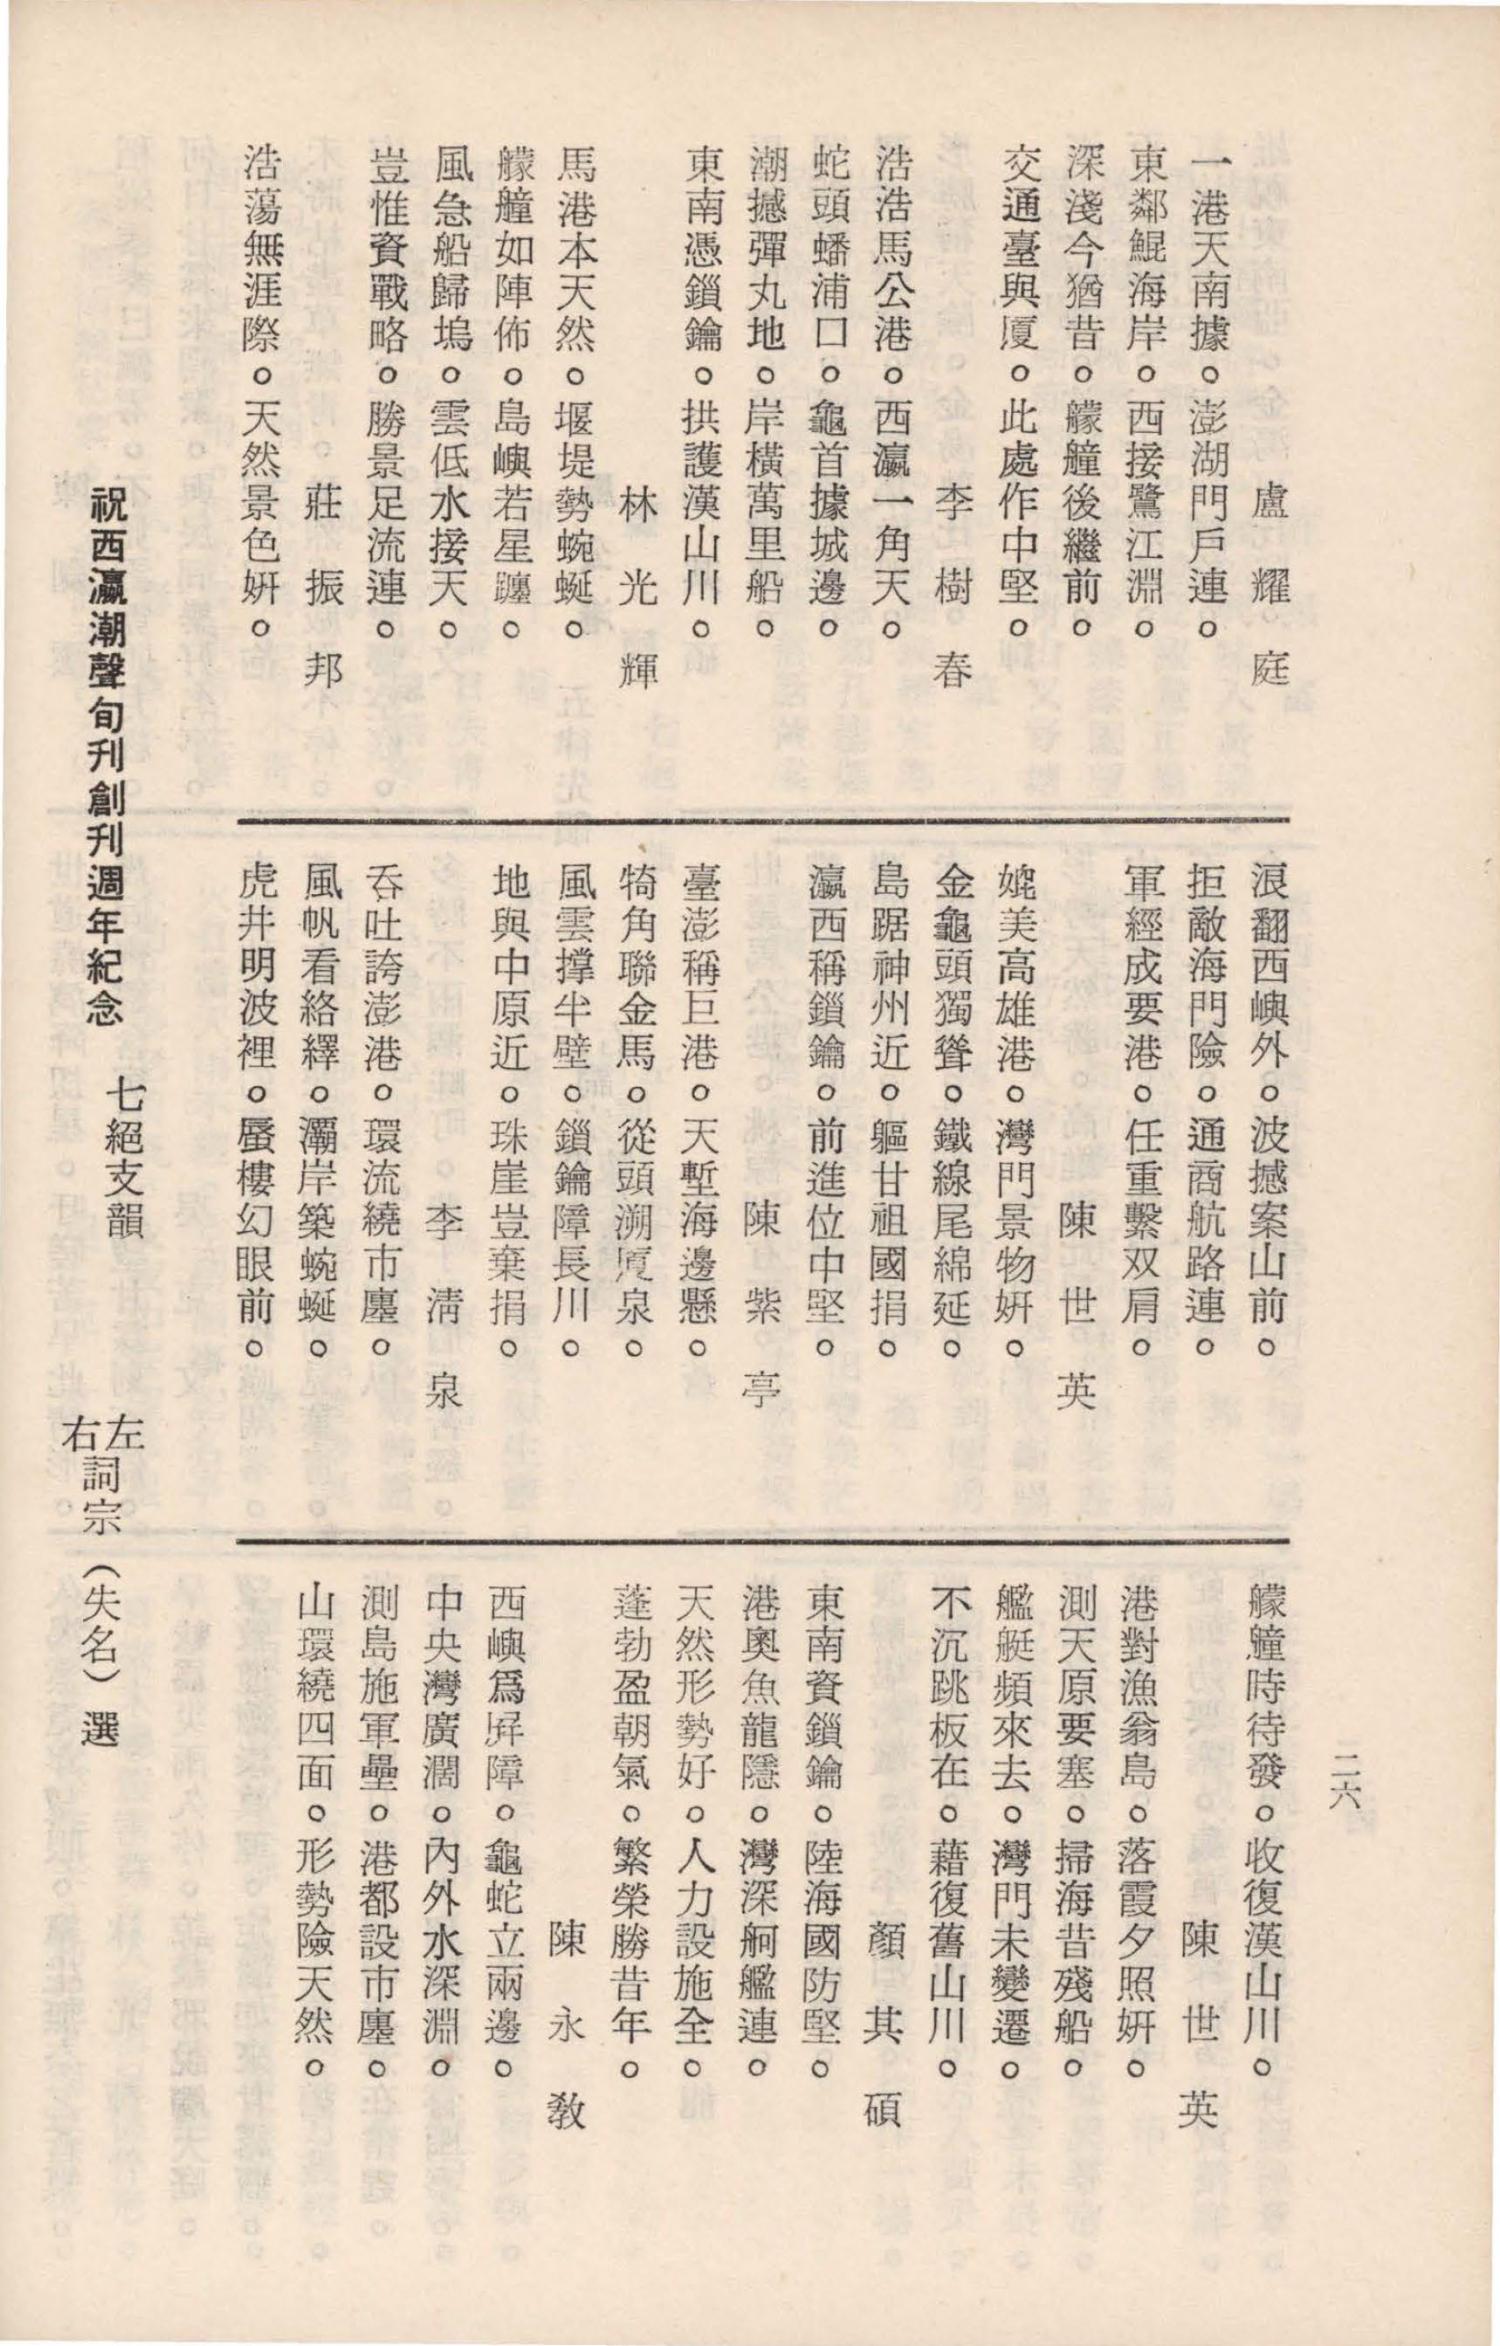 二六
盧耀庭
一港天南據。澎湖門戶連。
東鄰鯤海岸。西接鷺江淵。
深淺今猶昔。艨艟後繼前。
交通臺與厦。此處作中堅。
李樹春
浩浩馬公港。西瀛一角天。
蛇頭蟠浦口。龜首據城邊。
潮撼彈丸地。岸橫萬里船。
東南憑鎖鑰。拱護漢山川。
林光輝
馬港本天然。堰堤勢蜿蜒。
艨艟如陣佈。島嶼若星躔。
風急船歸塢。雲低水接天。
豈惟資戰略。勝景足流連。
莊振邦
浩蕩無涯際。天然景色妍。
浪翻西嶼外。波撼案山前。
拒敵海門險。通商航路連。
軍經成要港。任重繫双肩。
陳世英
媲美高雄港。灣門景物妍。
金龜頭獨聳。鐵線尾綿延。
島踞神州近。軀甘祖國捐。
瀛西稱鎖鑰。前進位中堅。
陳紫亭
臺澎稱巨港。天塹海邊懸。
犄角聯金馬。從頭溯厦泉。
風雲撑半壁。鎖鑰障長川。
地與中原近。珠崖豈棄捐。
李清泉
吞吐誇澎港。環流繞市廛。
風帆看絡繹。灞岸築蜿蜒。
虎井明波裡。蜃樓幻眼前。
艨艟時待發。收復漢山川。
陳世英
港對漁翁島。落霞夕照妍。
測天原要塞。掃海昔殘船。
艦艇頻來去。灣門未變遷。
不沉跳板在。藉復舊山川。
顏其碩
東南資鎖鑰。陸海國防堅。
港奧魚龍隱。灣深舸艦連。
天然形勢好。人力設施全。
蓬勃盈朝氣。繁榮勝昔年。
陳永敎
西嶼爲屛障。龜蛇立兩邊。
中央灣廣濶。內外水深淵。
測島施軍壘。港都設市廛。
山環繞四面。形勢險天然。
祝西瀛潮聲旬刊創刊週年紀念 七絕支韻 左右詞宗（失名）選